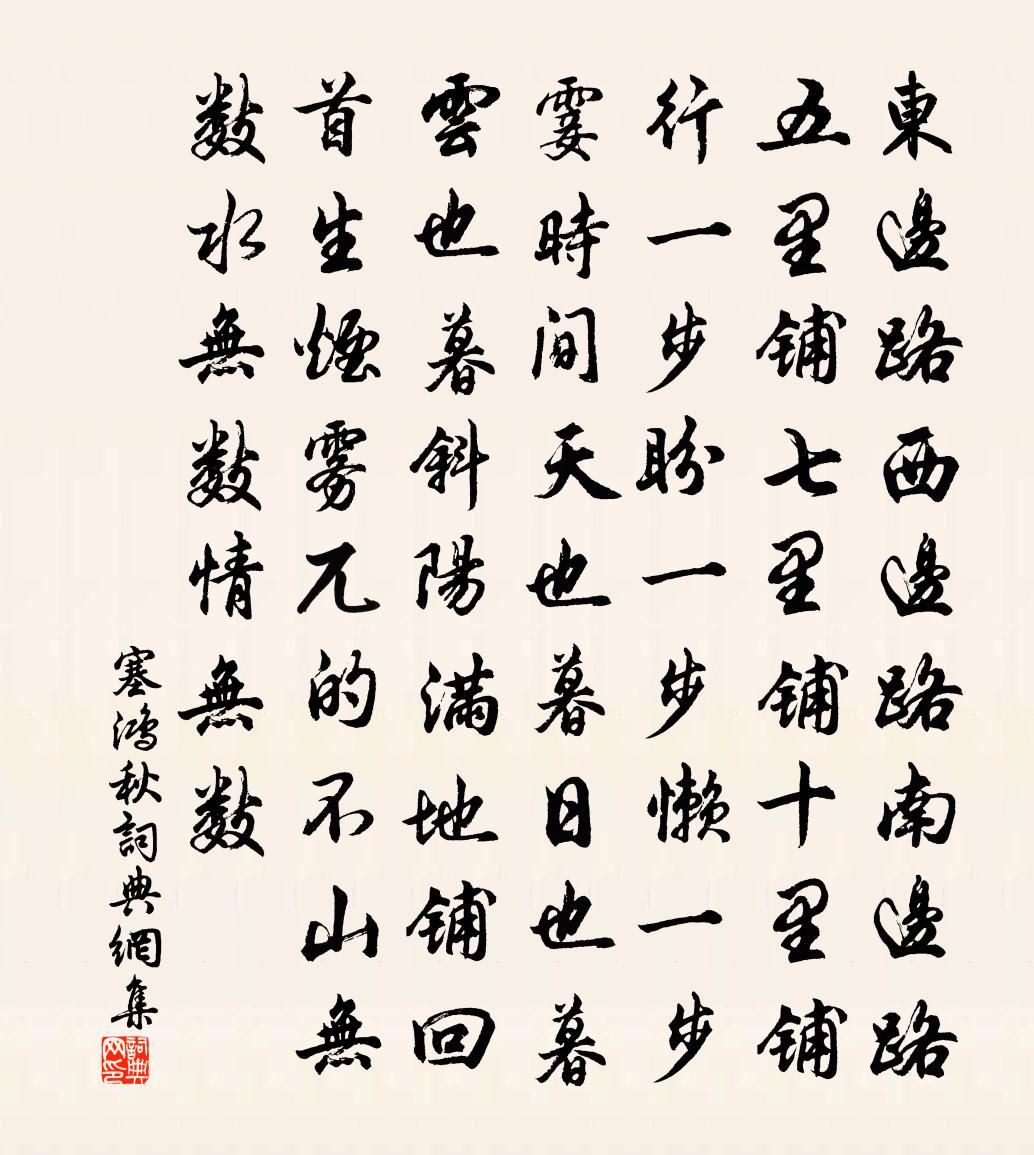 東邊路西邊路南邊路
五里鋪七里鋪十里鋪
行一步盼一步懶一步
霎時間天也暮日也暮
雲也暮斜陽滿地鋪回
首生煙雾兀的不山無
數水無數情無數
塞鴻秋詞典網集
詞典网印